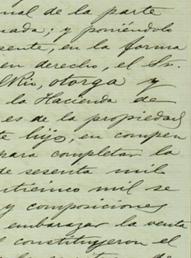 nal de la parte
nada; y poniéndolo
sente, en la forma
en derecho, el Sr.
lkin, otorga y
la Hacienda de
es de la propiedad
te hijo, en compen
para completar la
de sesenta mil
nticinco mil se
y composiciones
embarazar la venta
constituyeron el